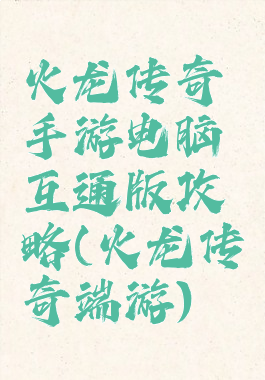 火龙传奇
手游电脑
互通版攻
略(火龙传
奇端游)